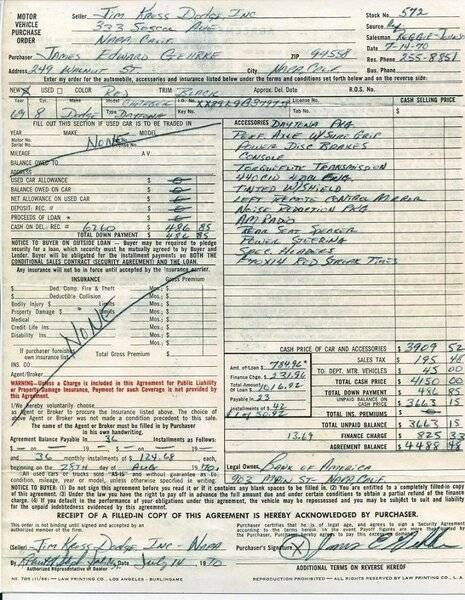 MOTOR VEHICLE PURCHASE ORDER
Seller JIM KRESS DODGE INC
333 SOSCOL AVE
NAPA CALIF
Stock No. 572
Source
Salesman
Date 7-14-70
Purchaser JAMES EDWARD GEHRKE
ZIP 94558
Res. Phone 255-8851
Address 249 WALNUT ST
City NAPA CALIF
Bus. Phone
Enter my order for the automobile, accessories and insurance listed below under the terms and conditions set forth below and on the reverse side:
NEW X USED
COLOR RED
TRIM BLACK
Approx. Del. Date
R.O.S. No.
Year
Make
Model
I.D. No.
License No.
CASH SELLING PRICE
69 8 DODGE DAYTONA
FILL OUT THIS SECTION IF USED CAR IS TO BE TRADED IN
YEAR MAKE MODEL
Motor No.
Serial No.
NONE
MILEAGE AV
BALANCE OWED TO
ADDRESS
USED CAR ALLOWANCE $
BALANCE OWED ON CAR $
NET ALLOWANCE ON USED CAR $
DEPOSIT: REC. # $
PROCEEDS OF LOAN * $
CASH ON DEL.: REC # 6260 $ 486 85
TOTAL DOWN PAYMENT $ 486 85
ACCESSORIES DAYTONA PKG
PERF AXLE W/SURE GRIP
POWER DISC BRAKES
CONSOLE
TORQUEFLITE TRANSMISSION
440 CID 4 BBL ENG.
TINTED W/SHIELD
LEFT REMOTE CONTROL MIRROR
NOISE REDUCTION PKG
AM RADIO
REAR SEAT SPEAKER
POWER STEERING
SPEC. HEADERS
F70X14 RED STREAK TIRES
NOTICE TO BUYER ON OUTSIDE LOAN – Buyer may be required to pledge security for a loan, which security must be mutually agreed to by Buyer and Lender. Buyer will be obligated for the installment payments on BOTH THE CONDITIONAL SALES CONTRACT (SECURITY AGREEMENT) AND THE LOAN.
Any insurance will not be in force until accepted by the Insurance carrier.
INSURANCE
Gross Premium
$ Ded. Comp. Fire & Theft Mos.; $
$ Deductible Collision Mos.; $
Bodily Injury $ Limits Mos.; $
Property Damage $ Limits Mos.; $
Medical Mos.; $
Credit Life Ins. Mos.; $
Disability Mos.; $
NONE
If purchaser furnishes own insurance fill in
Total Gross Premium
INS. CO.
Agent/Broker
WARNING—Unless a Charge is included in this Agreement for Public Liability or Property Damage Insurance, Payment for such Coverage is not provided by this Agreement.
CASH PRICE OF CAR AND ACCESSORIES $ 3909 52
SALES TAX 195 48
TO: DEPT. MTR. VEHICLES 45 00
TOTAL CASH PRICE $ 4150 00
TOTAL DOWN PAYMENT $ 486 85
UNPAID BALANCE ON CASH PRICE $ 3663 15
TOTAL INS. PREMIUMS
TOTAL UNPAID BALANCE $ 3663 15
13.69 FINANCE CHARGE $ 825 33
AGREEMENT BALANCE $ 4488 48
Amt. of Loan $ 784.96
Finance Chg. $ 231.96
Total Amount $ 1016.92
Payable in 23
Installments of $ 42
I hereby voluntarily choose
as Agent or Broker to procure the insurance listed above. The choice of above Agent or Broker was not made a condition precedent to this sale.
The name of the Agent or Broker must be filled in by Purchaser in his own handwriting.
Agreement Balance payable in 36 Installments as Follows:
and 36 monthly installments of $ 124.68 each,
beginning on the 28TH day of AUG 1970.
Legal Owner: BANK OF AMERICA
NAPA CALIF
NOTICE TO BUYER (1) Do not sign this agreement before you read it or if it contains any blank spaces to be filled in. (2) You are entitled to a completely filled-in copy of this agreement. (3) Under the law you have the right to pay off in advance the full amount due and under certain conditions to obtain a partial refund of the finance charge. (4) If you default in the performance of your obligations under this agreement, the vehicle may be repossessed and you may be subject to suit and liability for the unpaid indebtedness evidenced by this agreement.
RECEIPT OF A FILLED-IN COPY OF THIS AGREEMENT IS HEREBY ACKNOWLEDGED BY PURCHASER.
This order is not binding until signed and accepted by an authorized representative of Seller.
(Seller) JIM KRESS DODGE INC - NAPA
By
Authorized Representative of Dealer
July 14 1970
Purchaser's Signature X
ADDITIONAL TERMS ON REVERSE HEREOF
LAW PRINTING CO., LOS ANGELES - BURLINGAME
REPRODUCTION PROHIBITED — ALL RIGHTS RESERVED BY LAW PRINTING CO., L. A.